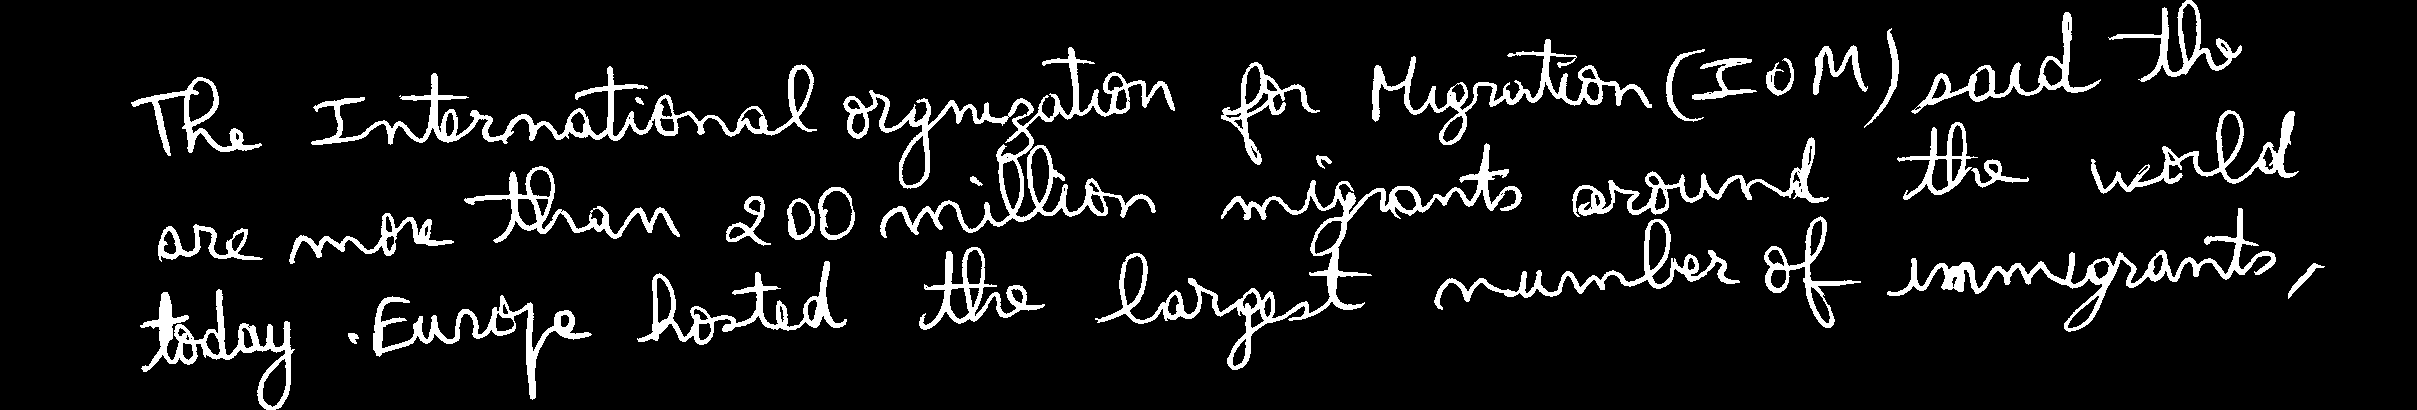 The International orgnization for Migration (IOM) said the
are more than 200 million migrants around the world
today . Europe hosted the largest number of immigrants,